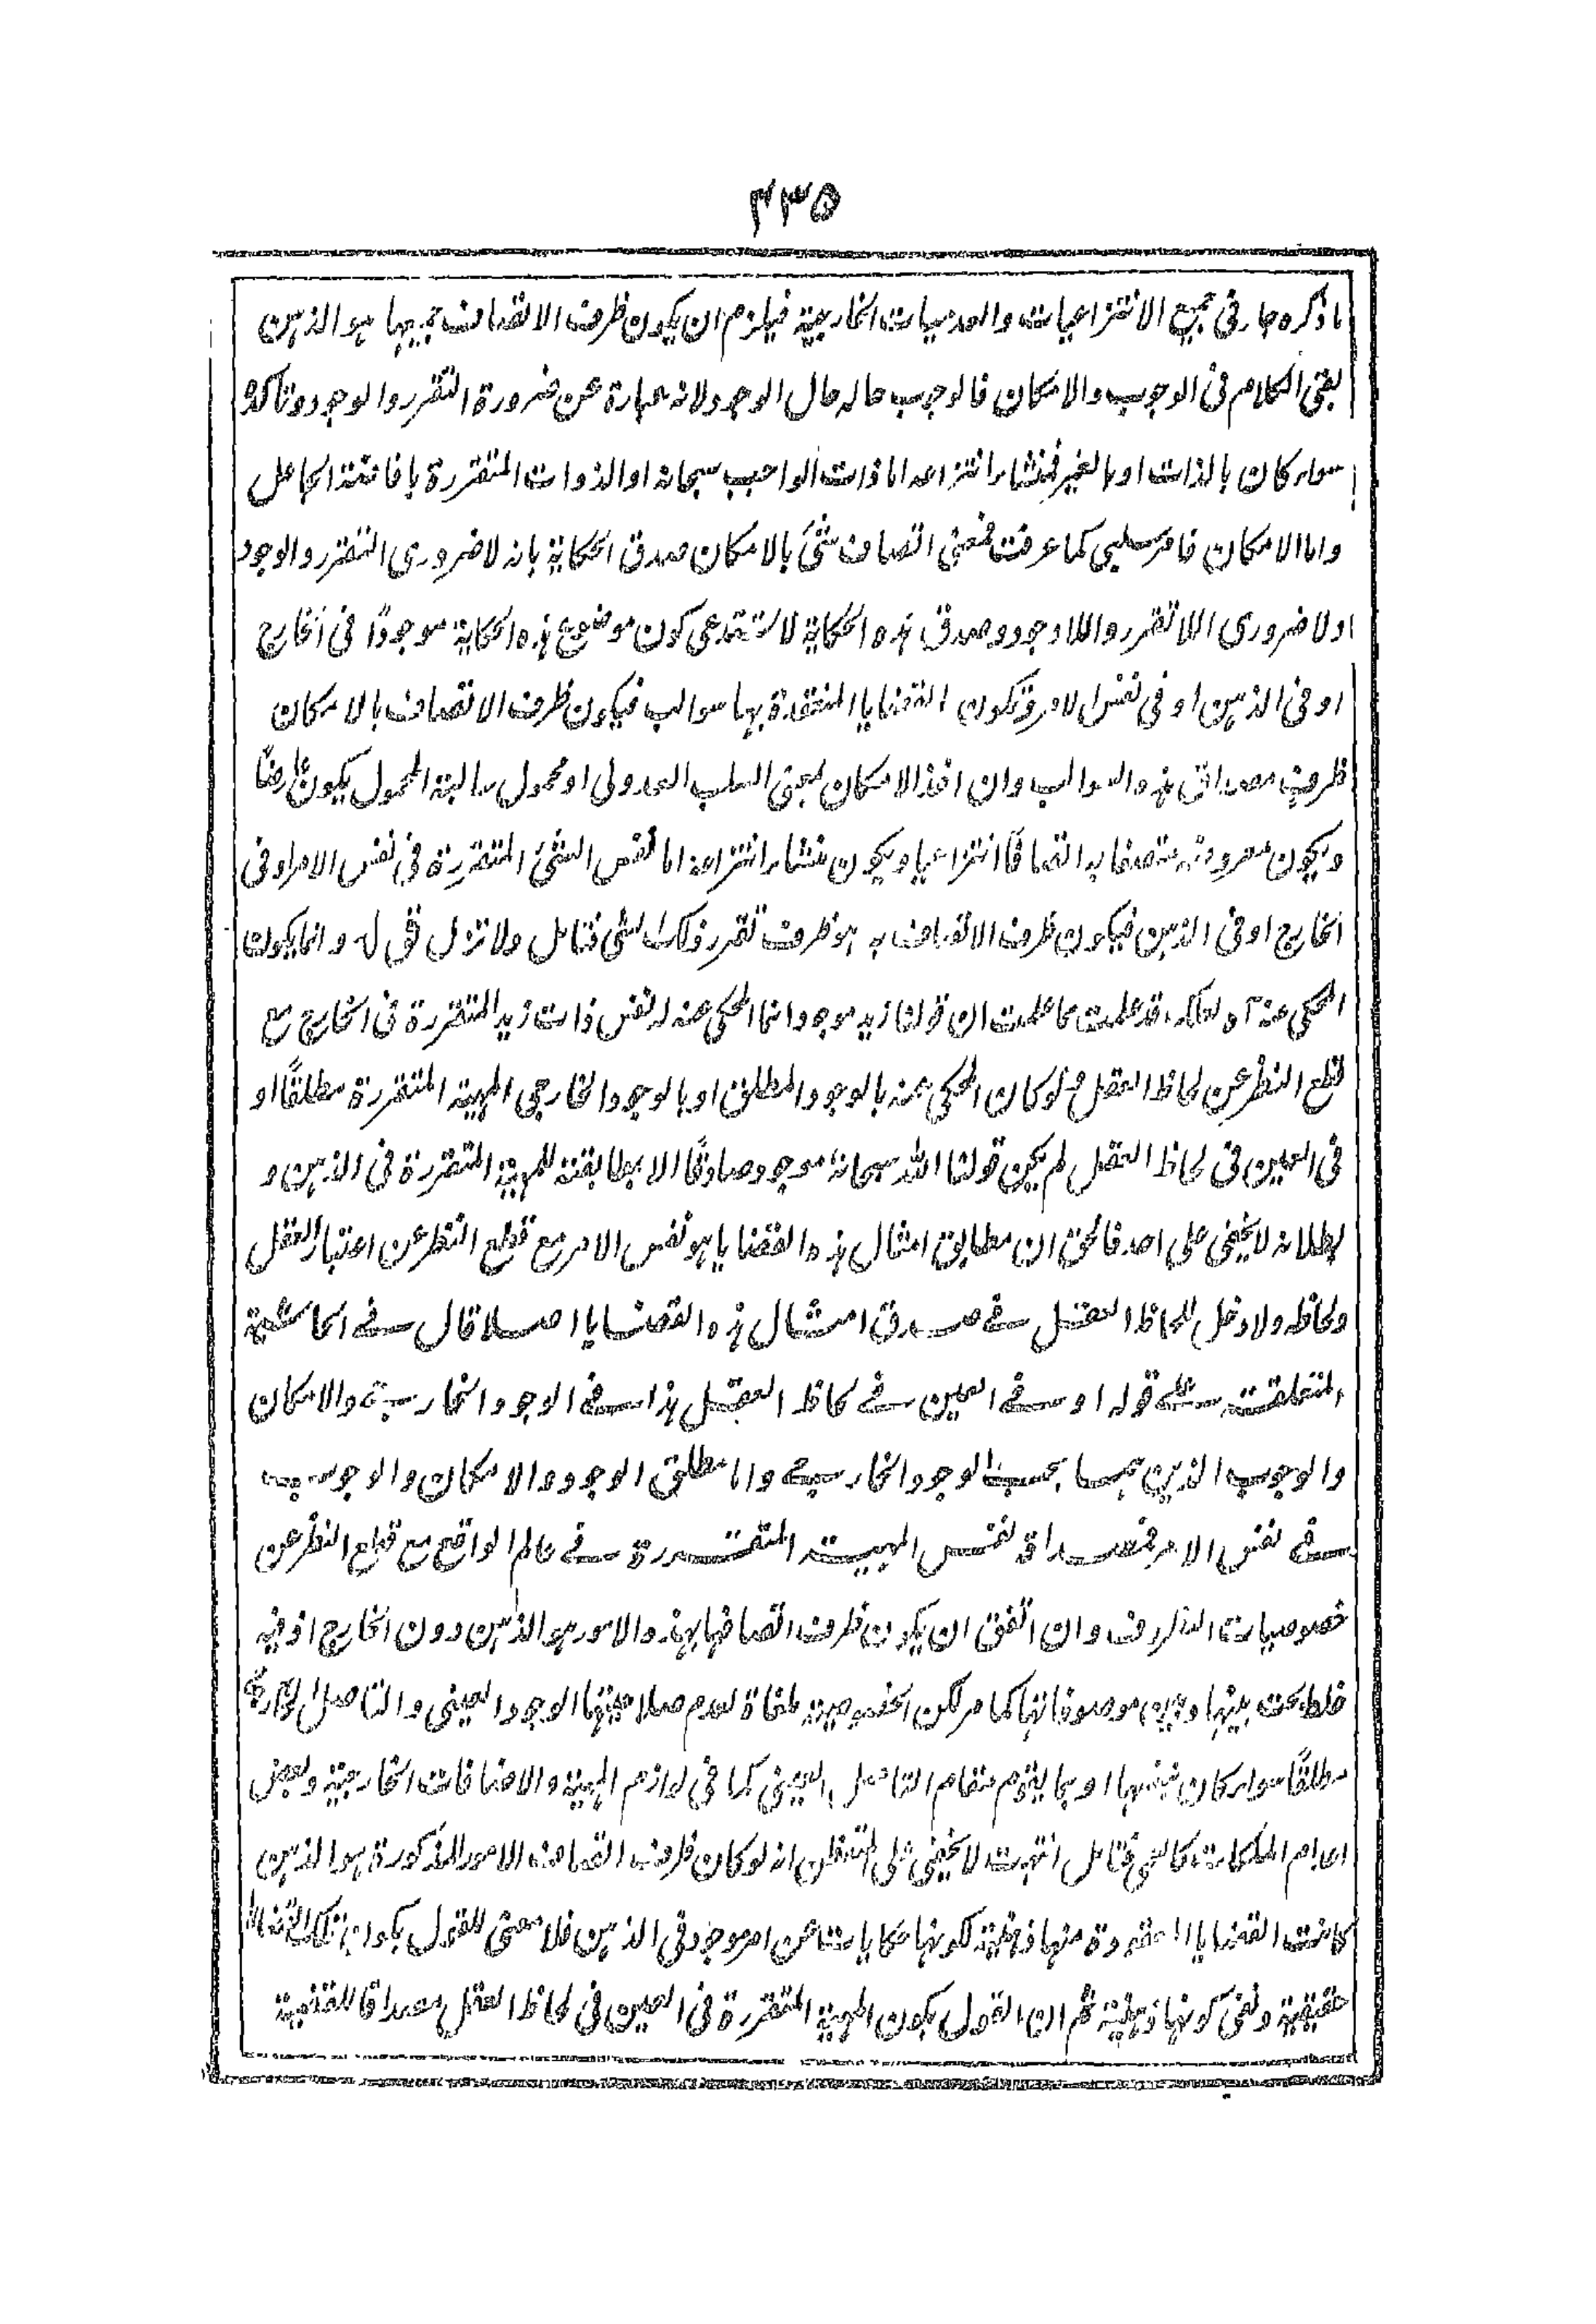 ۴۳۵
ما ذكره جار فى جميع الانتزاعيات والعدميات الخارجية فيلزم ان يكون ظرف الاتصاف بجميعها هو الذهن
بقى الكلام فى الوجوب والامكان فالوجوب حاله حال الوجود لانه عبارة عن ضرورة التقرر والوجود وتاكده
سواء كان بالذات او بالغير فمنشاء انتزاعه اما ذات الواجب سبحانه او الذوات المتقررة بافاضة الجاعل
واما الامكان فامر سلبى كما عرفت فمعنى اتصاف شئ بالامكان صدق الحكاية بانه لا ضرورى التقرر والوجود
ولا ضرورى اللاتقرر واللاوجود وصدق هذه الحكاية لا تستدعى كون موضوع هذه الحكاية موجودًا فى الخارج
او فى الذهن او فى نفس الامر وتكون القضايا المنعقدة بها سوالب فيكون ظرف الاتصاف بالامكان
ظرف مصداق هذه السوالب وان اخذ الامكان بمعنى السلب العدولى او محمول سالبة المحمول يكون عارضًا
ويكون معروضه متصفا به اتصافًا انتزاعيا ويكون منشاء انتزاعه اما نفس الشئ المتقررة فى نفس الامر او فى
الخارج او فى الذهن فيكون ظرف الاتصاف به هو ظرف تقرر ذلك الشئ فتامل ولا تزل قوله وانما يكون
المحكى عنه آه لعلك قد علمت مما علمت ان قولنا زيد موجود انما المحكى عنه له نفس ذات زيد المتقررة فى الخارج مع
قطع النظر عن لحاظ العقل فلو كان المحكى عنه بالوجود المطلق او بالوجود الخارجى المهية المتقررة مطلقًا او
فى العين فى لحاظ العقل لم يكن قولنا الله سبحانه موجود صادقًا الا بمطابقته للمهية المتقررة فى الذهن و
بطلانه لا يخفى على احد فالحق ان مطابق امثال هذه القضايا هو نفس الامر مع قطع النظر عن اعتبار العقل
ولحاظه ولا دخل للحاظ العقل فى صدق امثال هذه القضايا اصلا قال فى الحاشية
المتعلقة على قوله او فى العين فى لحاظ العقل هذا فى الوجود الخارجى والامكان
والوجوب الذين هما بحسب الوجود الخارجى واما مطلق الوجود والامكان والوجوب
فى نفس الامر فمصداقه نفس المهية المتقررة فى عالم الواقع مع قطع النظر عن
خصوصيات الظروف وان اتفق ان يكون ظرف اتصافها بهذه الامور هو الذهن دون الخارج اذ فيه
خلط بحت بينها وبين موصوفاتها كما مر لكن الخصوصية ملغاة لعدم صلاحيتها الوجود العينى والتاصل الخارجى
مطلقًا سواء كان بنفسها او بما يقوم مقام التاصل العينى كما فى لوازم المهية والاضافات الخارجية وبعض
اعدام الملكات كالعمى فتامل انتهت لا يخفى على المتفطن انه لو كان ظرف اتصاف الامور المذكورة هو الذهن
كانت القضايا المعقودة منها ذهنية لكونها حكايات عن امر موجود فى الذهن فلا معنى للقول بكون تلك القضايا
حقيقية ونفى كونها ذهنية ثم ان القول بكون المهية المتقررة فى العين فى لحاظ العقل مصداقا للقضية